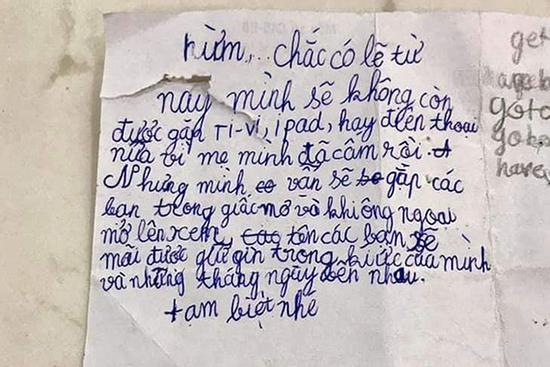 hừm,... chắc có lẽ từ
nay mình sẽ không còn
được gặp Ti-vi, ipad, hay điện thoại
nữa tại mẹ mình đã câm rồi.
Nhưng mình vẫn sẽ gặp các
bạn trong giấc mơ và khi ông ngoại
mở lên xem, tên các bạn sẽ
mãi được giữ gìn trong kí ức của mình
và những tháng ngày bên nhau.
tạm biệt nhé
get
go
have